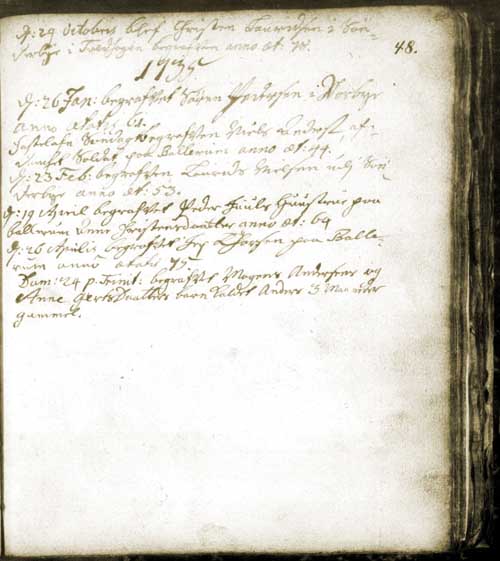 d: 29 Octobris blef Christen Lauridsen i Søn-
derbye i begrafven anno æt: 78.
48.
1735
d: 26 Jan: begrafvet Søren Pedersen i Norbye
anno ætat: 61.
Fastelafn Søndag begrafven Niels af-
Soldat paa Ballerum anno æt: 44.
d: 23 Feb: begrafven Laurids Nielsen udj Søn
derbye anno æt: 53.
d: 19 April begrafvet Peder Huustrue paa
ballerum Anne Christensdaatter anno æt: 64
d: 26 Aprilis begrafvet paa Balle-
rum anno ætatis 75
Dom: 24 p. Trinit: begrafvet Mogens Andersens og
Anne GertsDaatters barn Kaldet Anders 3 Maaneder
gammel.